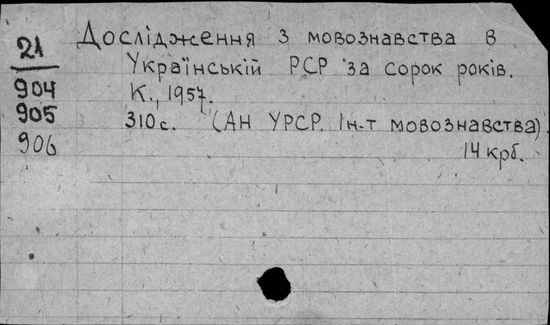 Дослідження з мовознавства в
21
Українській РСР за сорок років.
904
К., 1957.
905
310 с. (АН УРСР. Ін-т мовознавства).
906
14 крб.